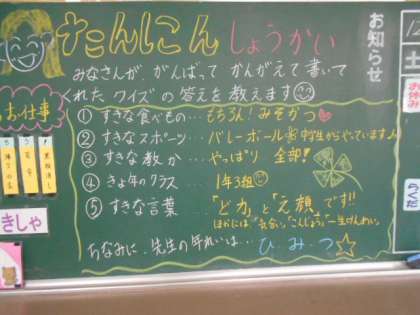 たんにん しょうかい
みなさんが、がんばって かんがえて 書いて
くれた クイズの 答えを 教えます
① すきな食べもの… もちろん! みそかつ
② すきなスポーツ… バレーボール 中学生からやっていますよ
③ すきな教か… やっぱり 全部!
④ きょ年のクラス… 1年3組
⑤ すきな言葉… 「ど力」と「え顔」です!!
ほかには
ちなみに、先生の年れいは… ひ・み・つ
お知らせ
土
お休み
らくだ
お仕事
きしゃ